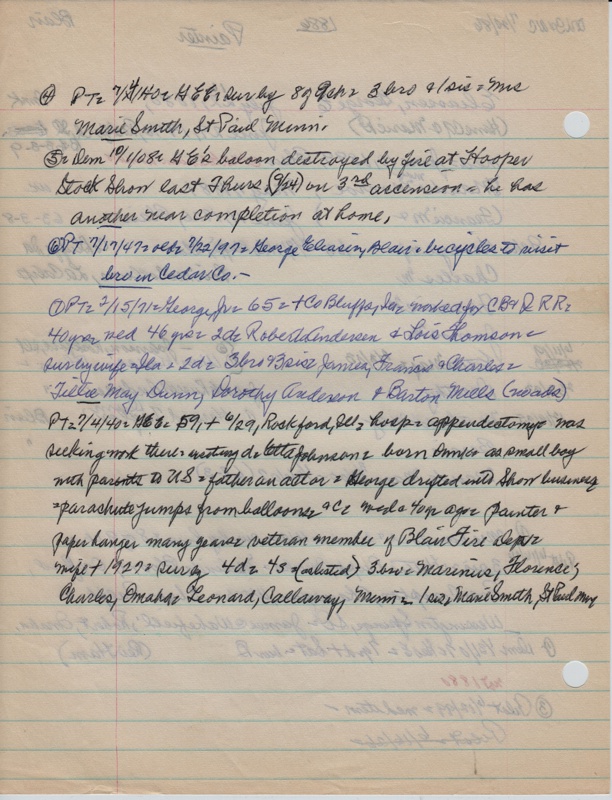 ④ PT= 7/4/40= HEE= sur by 8 g gsp= 3 bro & 1 sis= Mrs
Marie Smith, St Paul Minn.
⑤= Dem 10/1/08= HE's baloon destroyed by fire at Hooper
Stock Show last Thurs (9/24) on 3rd ascension= he has
another near completion at home.
⑥ PT 7/17/47= 7/22/97= George Eliasin, Blair= bicycles to visit
bro in Cedar Co.-
PT= 2/15/71= George, Jr= 65= + Co Bluffs, Ia= worked for CB& RR=
40 yrs= wed 46 yrs= 2d= Robert Andersen & Lois Thomson=
sur by wife= Ila= 2d= 3 bro & 3 sis= James, Francis & Charles=
Tillie May Dunn, Dorothy Anderson & Barton Mills (Nevada)
PT= 7/4/40= HEE= 59, + 6/29, Rockford, Ill= hosp= appendectomy= was
seeking work there= visiting d= Etta Johnson= born Denmk= as small boy
with parents to US= father an actor= George drifted into Show business
= parachute jumps from balloons &c= wed 40 yr ago= painter &
paper hanger many years= veteran member of Blair Fire Dept=
wife + 1927= sur by 4d= 4s= (as listed) 3 bro= Marinus, Florence;
Charles, Omaha= Leonard, Callaway, Minn= 1 sis, Marie Smith, St Paul